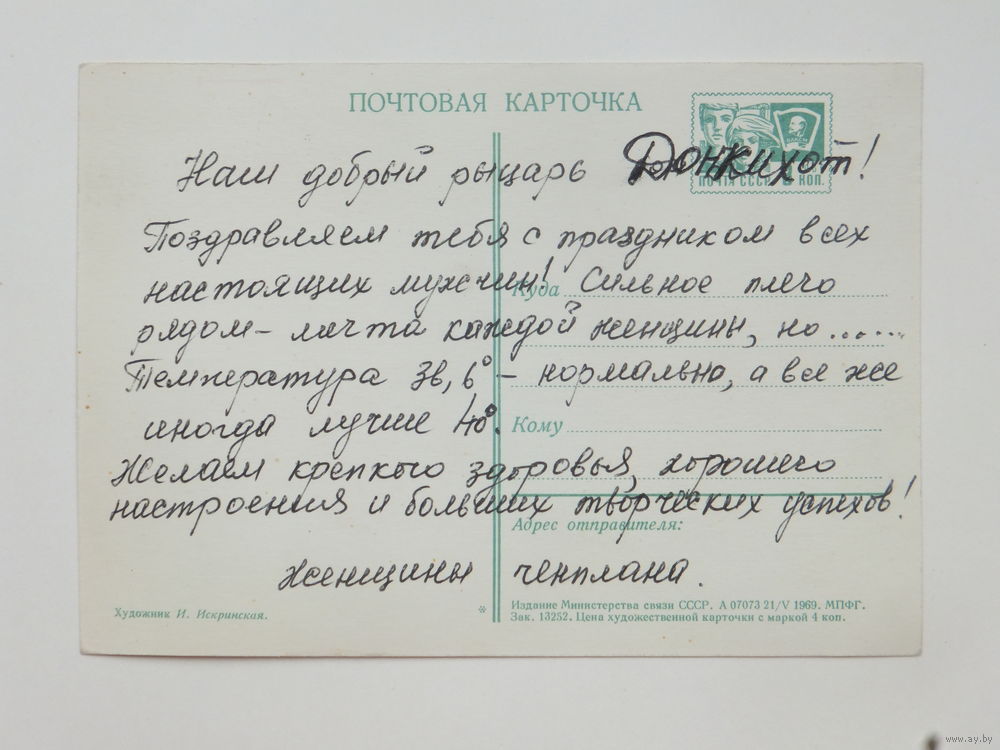 ПОЧТОВАЯ КАРТОЧКА
ВЛКСМ
ПОЧТА СССР КОП.
Наш добрый рыцарь Донкихот!
Поздравляем тебя с праздником всех
настоящих мужчин! Сильное плечо
Куда
рядом – мечта каждой женщины, но......
Температура 36,6° – нормально, а все же
иногда лучше 40°.
Кому
Желаем крепкого здоровья, хорошего
настроения и больших творческих успехов!
Адрес отправителя:
Женщины ченплана.
Художник И. Искринская.
*
Издание Министерства связи СССР. А 07073 21/V 1969. МПФГ.
Зак. 13252. Цена художественной карточки с маркой 4 коп.
www.ay.by